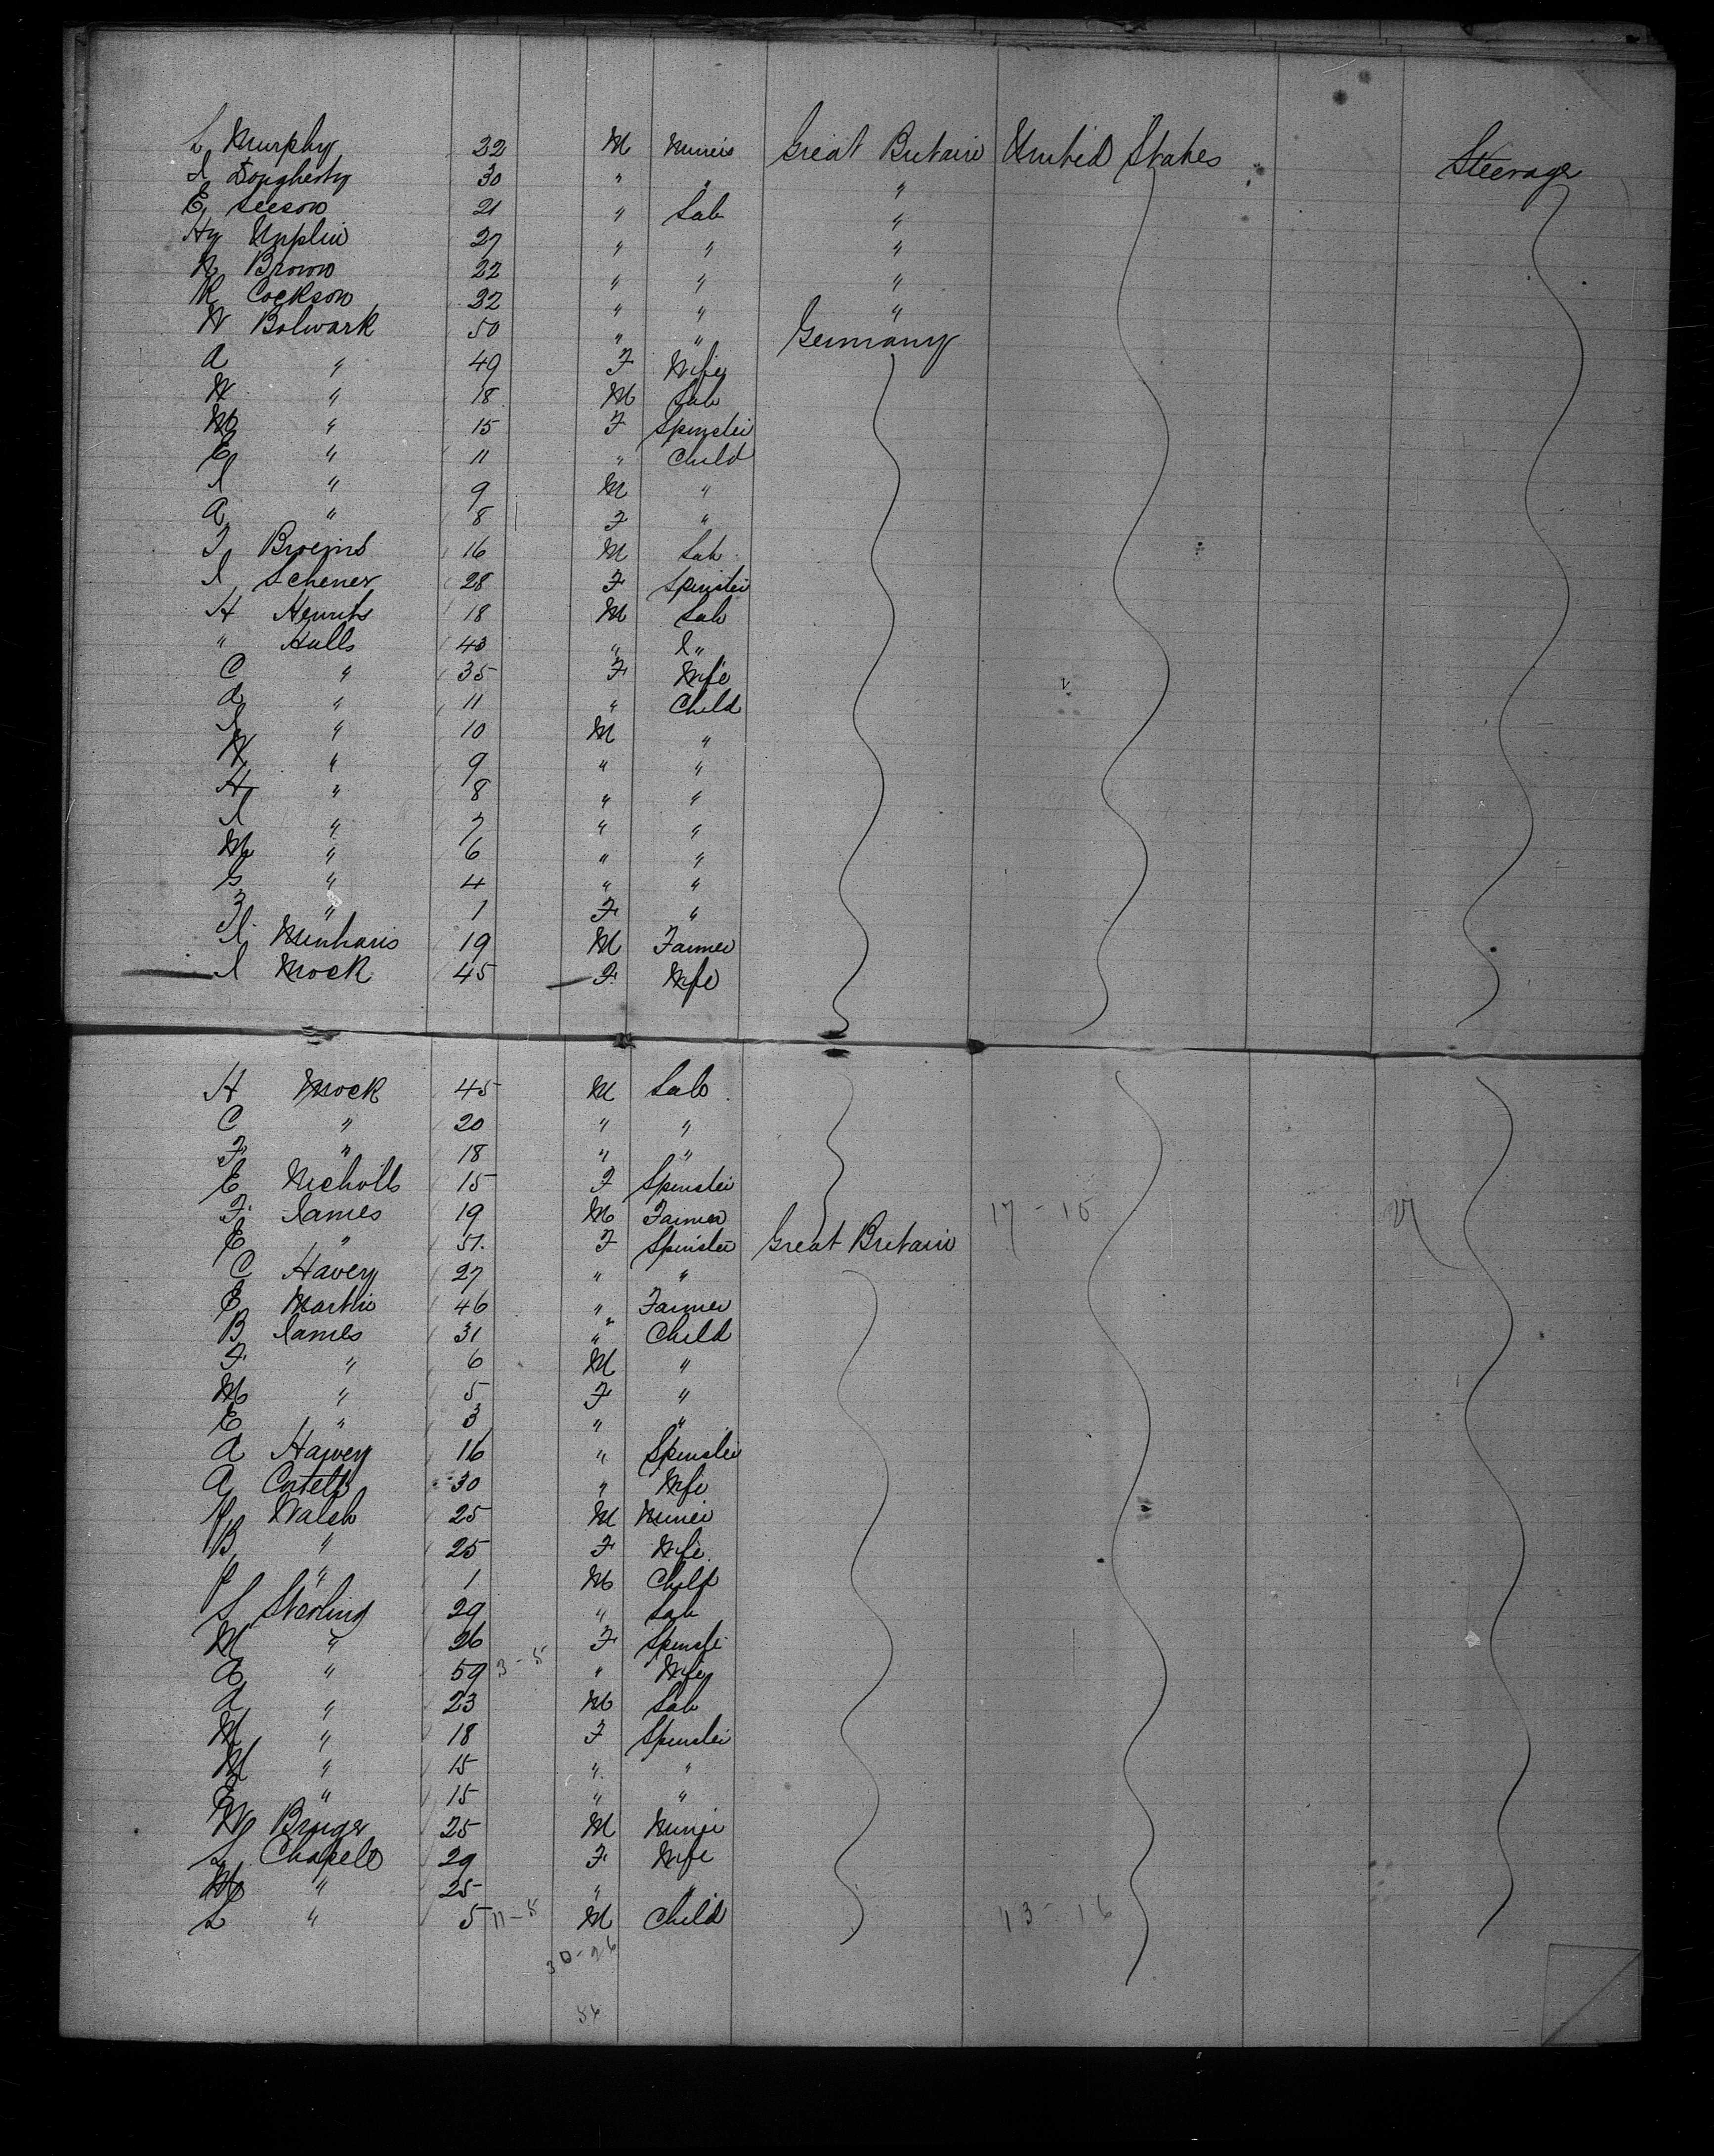 L Murphy 32 M Miner Great Britain United States Steerage
J Dougherty 30 " " "
E Leeson 21 " Lab "
Hy Unplin 27 " " "
R Brown 22 " " "
R Cockson 32 " " "
W Bolwark 50 " " Germany
A " 49 F Wife
W " 18 M Lab
M " 15 F Spinster
E " 11 " Child
J " 9 M "
A " 8 F "
J 16 M Lab
J Schener 28 F Spinster
H 18 M Lab
" Halls 40 " L"
C " 35 F Wife
A " 11 " Child
J " 10 M "
W " 9 " "
H " 8 " "
J " 7 " "
M " 6 " "
G " 4 " "
" 1 F "
J 19 M Farmer
J Mock 45 F Wife
H Mock 45 M Lab
C " 20 " "
F " 18 " "
E Nicholls 15 F Spinster
F James 19 M Farmer 17-15
E " 51 F Spinster Great Britain
C Havery 27 " "
E Martin 46 " Farmer
B James 31 " Child
F " 6 M "
M " 5 F "
E " 3 " "
A Harvey 16 " Spinster
A 30 " Wife
P Walsh 25 M Miner
B " 25 F Wife
P " 1 M Child
S Sterling 29 " Lab
M " 26 F Spinster
" 59 3-5 " Wife
A " 23 M Lab
M " 18 F Spinster
M " 15 " "
E " 15 " "
W Bruger 25 M Miner
L Chapell 29 F Wife
M " 25 " "
L " 5 11-8 M Child 13-16
30-26
56